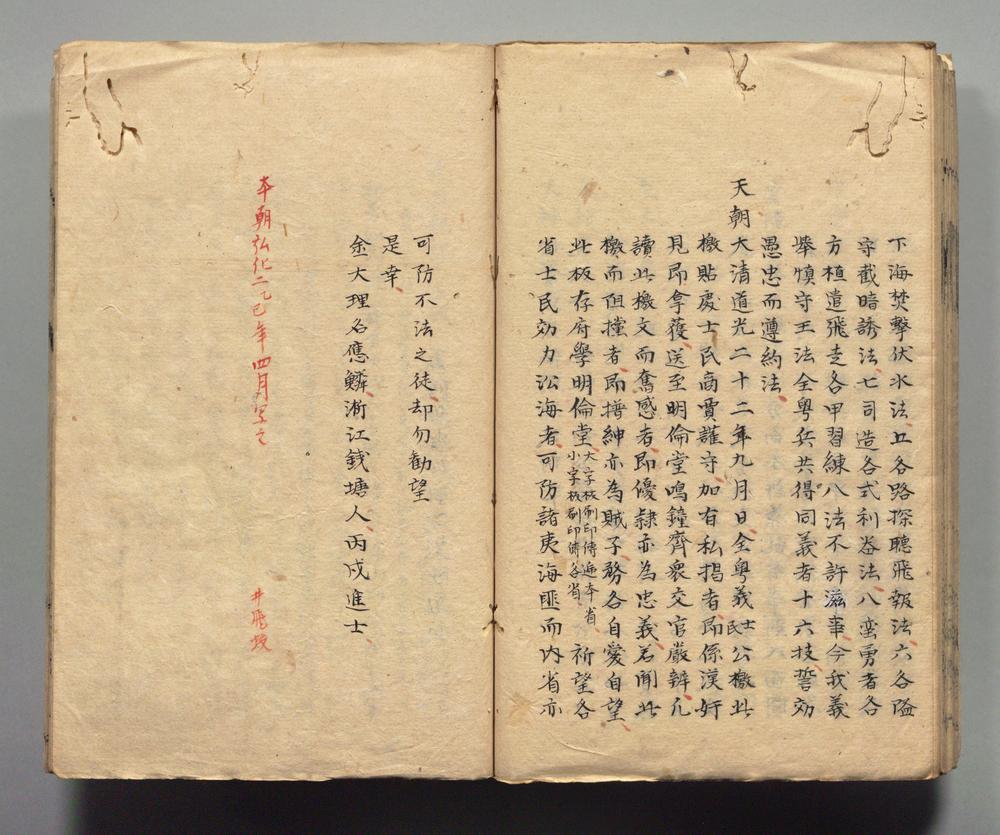 下海焚擊伏水法五各路探聽飛報法六各隘
守截暗誘法七司造各式利器法八蛮勇者各
方植遣飛走各甲習練八法不許滋事今我義
舉慎守王法全粵兵共得同義者十六技誓効
愚忠而遵約法
天朝大清道光二十二年九月日全粵義士民公檄此
檄貼處士民商賈謹守加有私揭者即係漢奸
見即拿獲送至明倫堂鳴鐘齊衆交官嚴辨凡
讀此檄文而奮感者即優隸亦為忠義若聞此
檄而阻撓者即搢紳亦為賊子務各自愛自望
此板存府學明倫堂大字板刷印傳遍本省小字板刷印傳各省祈望各
省士民効力沿海者可防諸夷海匪而內省亦
可防不法之徒却勿勸望
是幸
金大理名應麟浙江錢塘人丙戌進士
本朝弘化二乙巳年四月写之
井飛